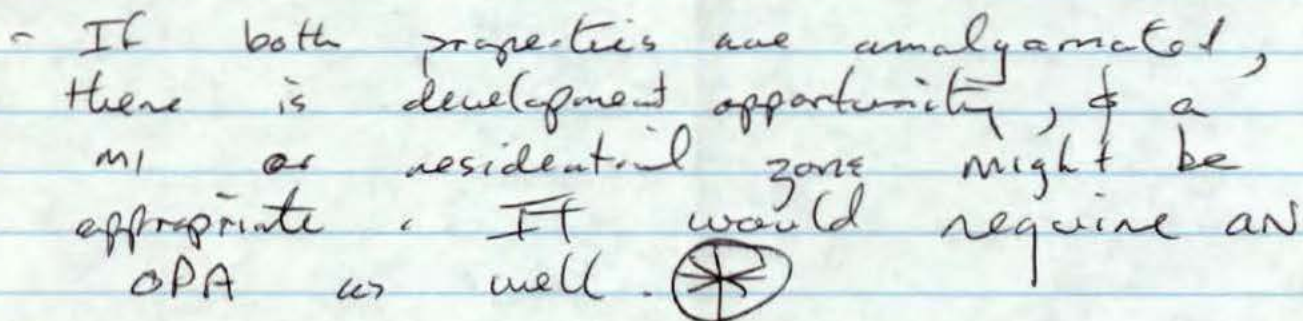 - If both properties are amalgamated,
there is development opportunity, & a
M1 or residential zone might be
appropriate. It would require an
OPA as well. *